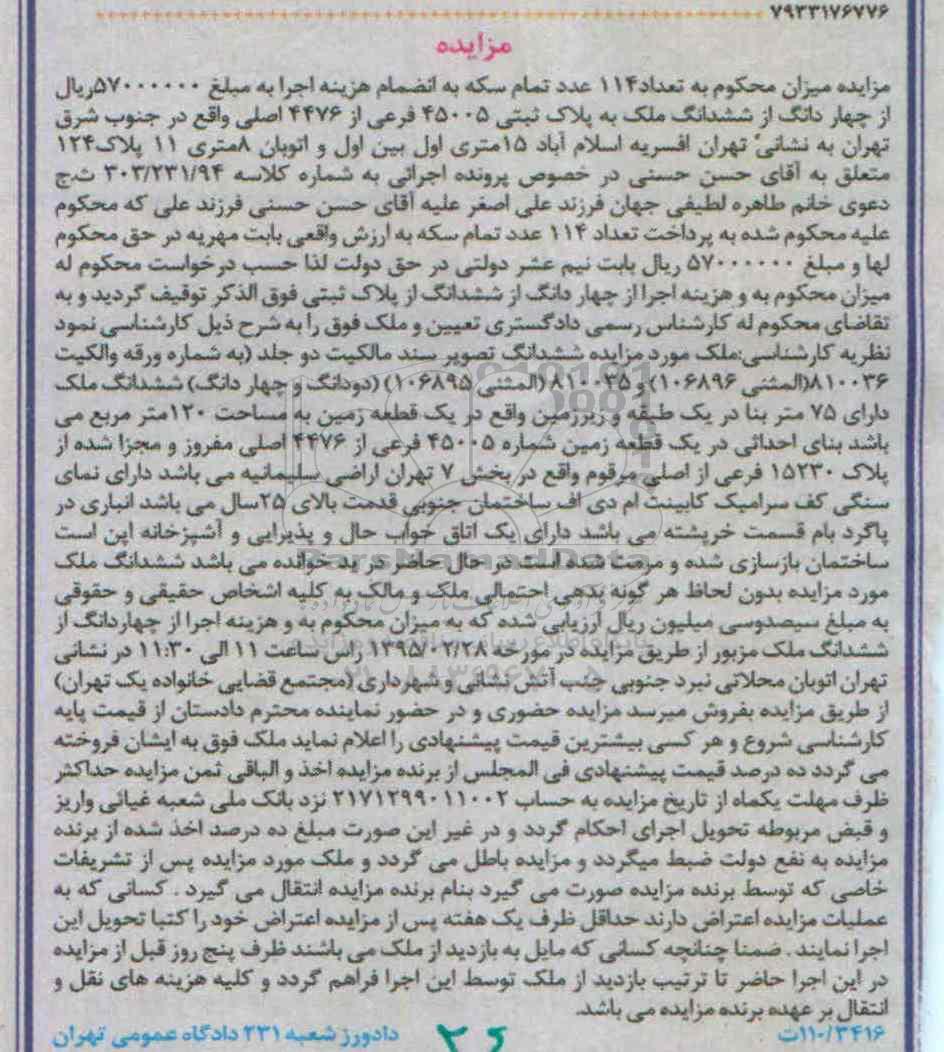 ۷۹۲۳۱۷۶۷۷۶
مزایده
مزایده میزان محکوم به تعداد۱۱۴ عدد تمام سکه به انضمام هزینه اجرا به مبلغ ۵۷۰۰۰۰۰۰ریال
از چهار دانگ از ششدانگ ملک به پلاک ثبتی ۴۵۰۰۵ فرعی از ۴۴۷۶ اصلی واقع در جنوب شرق
تهران به نشانی تهران افسریه اسلام آباد ۱۵متری اول بین اول و اتوبان ۸متری ۱۱ پلاک۱۲۴
متعلق به آقای حسن حسنی در خصوص پرونده اجرائی به شماره کلاسه ۳۰۳/۲۳۱/۹۴ ش.ج
دعوی خانم طاهره لطیفی جهان فرزند علی اصغر علیه آقای حسن حسنی فرزند علی که محکوم
علیه محکوم شده به پرداخت تعداد ۱۱۴ عدد تمام سکه به ارزش واقعی بابت مهریه در حق محکوم
لها و مبلغ ۵۷۰۰۰۰۰۰ ریال بابت نیم عشر دولتی در حق دولت لذا حسب درخواست محکوم له
میزان محکوم به و هزینه اجرا از چهار دانگ از ششدانگ از پلاک ثبتی فوق الذکر توقیف گردید و به
تقاضای محکوم له کارشناس رسمی دادگستری تعیین و ملک فوق را به شرح ذیل کارشناسی نمود
نظریه کارشناسی:ملک مورد مزایده ششدانگ تصویر سند مالکیت دو جلد (به شماره ورقه والکیت
۸۱۰۰۳۶(المثنی ۱۰۶۸۹۶) و ۸۱۰۰۳۵ (المثنی ۱۰۶۸۹۵) (دودانگ و چهار دانگ) ششدانگ ملک
دارای ۷۵ متر بنا در یک طبقه و زیرزمین واقع در یک قطعه زمین به مساحت ۱۲۰متر مربع می
باشد بنای احداثی در یک قطعه زمین شماره ۴۵۰۰۵ فرعی از ۴۴۷۶ اصلی مفروز و مجزا شده از
پلاک ۱۵۲۳۰ فرعی از اصلی مرقوم واقع در بخش ۷ تهران اراضی سلیمانیه می باشد دارای نمای
سنگی کف سرامیک کابینت ام دی اف ساختمان جنوبی قدمت بالای ۲۵سال می باشد انباری در
پاگرد بام قسمت خرپشته می باشد دارای یک اتاق خواب حال و پذیرایی و آشپزخانه اپن است
ساختمان بازسازی شده و مرمت شده است در حال حاضر در ید خوانده می باشد ششدانگ ملک
مورد مزایده بدون لحاظ هر گونه بدهی احتمالی ملک و مالک به کلیه اشخاص حقیقی و حقوقی
به مبلغ سیصدوسی میلیون ریال ارزیابی شده که به میزان محکوم به و هزینه اجرا از چهاردانگ از
ششدانگ ملک مزبور از طریق مزایده در مورخه ۱۳۹۵/۰۲/۲۸ راس ساعت ۱۱ الی ۱۱:۳۰ در نشانی
تهران اتوبان محلاتی نبرد جنوبی جنب آتش نشانی و شهرداری (مجتمع قضایی خانواده یک تهران)
از طریق مزایده بفروش میرسد مزایده حضوری و در حضور نماینده محترم دادستان از قیمت پایه
کارشناسی شروع و هر کسی بیشترین قیمت پیشنهادی را اعلام نماید ملک فوق به ایشان فروخته
می گردد ده درصد قیمت پیشنهادی فی المجلس از برنده مزایده اخذ و الباقی ثمن مزایده حداکثر
ظرف مهلت یکماه از تاریخ مزایده به حساب ۲۱۷۱۲۹۹۰۱۱۰۰۲ نزد بانک ملی شعبه غیائی واریز
و قبض مربوطه تحویل اجرای احکام گردد و در غیر این صورت مبلغ ده درصد اخذ شده از برنده
مزایده به نفع دولت ضبط میگردد و مزایده باطل می گردد و ملک مورد مزایده پس از تشریفات
خاصی که توسط برنده مزایده صورت می گیرد بنام برنده مزایده انتقال می گیرد . کسانی که به
عملیات مزایده اعتراض دارند حداقل ظرف یک هفته پس از مزایده اعتراض خود را کتبا تحویل این
اجرا نمایند . ضمنا چنانچه کسانی که مایل به بازدید از ملک می باشند ظرف پنج روز قبل از مزایده
در این اجرا حاضر تا ترتیب بازدید از ملک توسط این اجرا فراهم گردد و کلیه هزینه های نقل و
انتقال بر عهده برنده مزایده می باشد.
۱۱۰/۳۴۱۶ت دادورز شعبه ۲۳۱ دادگاه عمومی تهران
۲۶
ParsNamadData